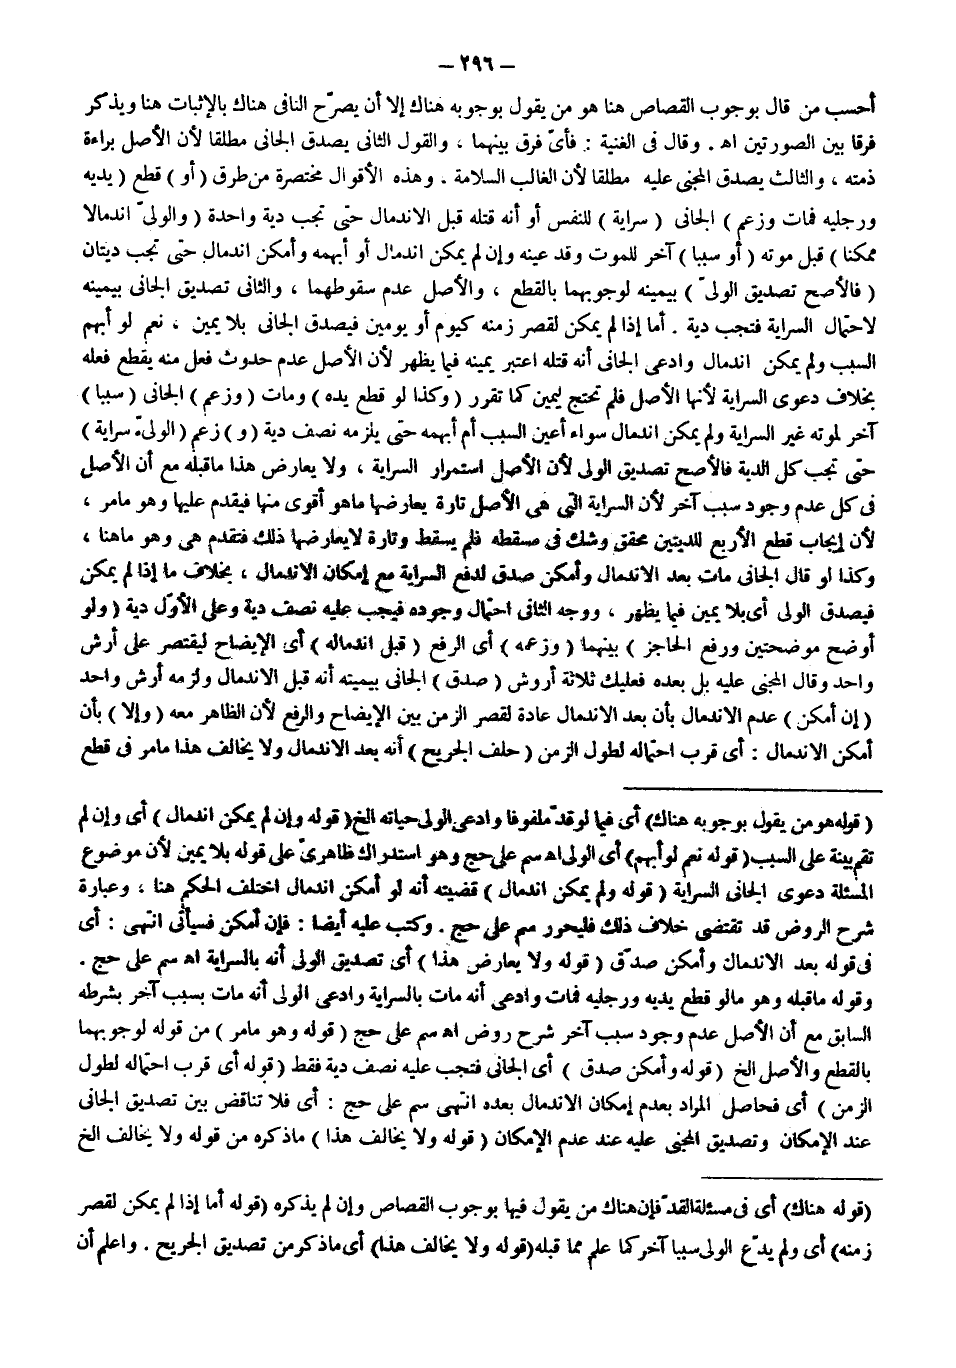 – ٢٩٦ –
أحسب من قال بوجوب القصاص هنا هو من يقول بوجوبه هناك إلا أن يصرّح النافى هناك بالإثبات هنا ويذكر
فرقا بين الصورتين اهـ . وقال فى الغنية : فأىّ فرق بينهما ، والقول الثانى يصدق الجانى مطلقا لأن الأصل براءة
ذمته ، والثالث يصدق المجنى عليه مطلقا لأن الغالب السلامة . وهذه الأقوال مختصرة من طرق ( أو ) قطع ( يديه
ورجليه فمات وزعم ) الجانى ( سراية ) للنفس أو أنه قتله قبل الاندمال حتى تجب دية واحدة ( والولىّ اندمالا
ممكنا ) قبل موته ( أو سببا ) آخر للموت وقد عينه وإن لم يمكن اندمال أو أبهمه وأمكن اندمال حتى تجب ديتان
( فالأصح تصديق الولىّ ) بيمينه لوجوبهما بالقطع ، والأصل عدم سقوطهما ، والثانى تصديق الجانى بيمينه
لاحتمال السراية فتجب دية . أما إذا لم يمكن لقصر زمنه كيوم أو يومين فيصدق الجانى بلا يمين ، نعم لو أبهم
السبب ولم يمكن اندمال وادعى الجانى أنه قتله اعتبر يمينه فيما يظهر لأن الأصل عدم حدوث فعل منه يقطع فعله
بخلاف دعوى السراية لأنها الأصل فلم تحتج ليمين كما تقرر ( وكذا لو قطع يده ) ومات ( وزعم ) الجانى ( سببا )
آخر لموته غير السراية ولم يمكن اندمال سواء أعين السبب أم أبهمه حتى يلزمه نصف دية ( و ) زعم ( الولىّ سراية )
حتى تجب كل الدية فالأصح تصديق الولى لأن الأصل استمرار السراية ، ولا يعارض هذا ماقبله مع أن الأصل
فى كل عدم وجود سبب آخر لأن السراية التى هى الأصل تارة يعارضها ماهو أقوى منها فيقدم عليها وهو مامر ،
لأن إيجاب قطع الأربع للديتين محقق وشك فى مسقطه فلم يسقط وتارة لايعارضها ذلك فتقدم هى وهو ماهنا ،
وكذا لو قال الجانى مات بعد الاندمال وأمكن صدق لدفع السراية مع إمكان الاندمال ، بخلاف ما إذا لم يمكن
فيصدق الولى أى بلا يمين فيما يظهر ، ووجه الثانى احتمال وجوده فيجب عليه نصف دية وعلى الأوّل دية ( ولو
أوضح موضحتين ورفع الحاجز ) بينهما ( وزعمه ) أى الرفع ( قبل اندماله ) أى الإيضاح ليقتصر على أرش
واحد وقال المجنى عليه بل بعده فعليك ثلاثة أروش ( صدق ) الجانى بيمينه أنه قبل الاندمال ولزمه أرش واحد
( إن أمكن ) عدم الاندمال بأن بعد الاندمال عادة لقصر الزمن بين الإيضاح والرفع لأن الظاهر معه ( وإلا ) بأن
أمكن الاندمال : أى قرب احتماله لطول الزمن ( حلف الجريح ) أنه بعد الاندمال ولا يخالف هذا مامر فى قطع
( قوله هو من يقول بوجوبه هناك) أى فيما لو قدّ ملفوفا وادعى الولى حياته الخ ( قوله وإن لم يمكن اندمال ) أى وإن لم
تقم بينة على السبب ( قوله نعم لو أبهم) أى الولى اه سم على حج وهو استدراك ظاهرىّ على قوله بلا يمين لأن موضوع
المسئلة دعوى الجانى السراية ( قوله ولم يمكن اندمال ) قضيته أنه لو أمكن اندمال اختلف الحكم هنا ، وعبارة
شرح الروض قد تقتضى خلاف ذلك فليحرر سم على حج . وكتب عليه أيضا : فإن أمكن فسيأتى انتهى : أى
فى قوله بعد الاندمال وأمكن صدّق ( قوله ولا يعارض هذا ) أى تصديق الولى أنه بالسراية اه سم على حج .
وقوله ماقبله وهو مالو قطع يديه ورجليه فمات وادعى أنه مات بالسراية وادعى الولى أنه مات بسبب آخر بشرطه
السابق مع أن الأصل عدم وجود سبب آخر شرح روض اه سم على حج ( قوله وهو مامر ) من قوله لوجوبهما
بالقطع والأصل الخ ( قوله وأمكن صدق ) أى الجانى فتجب عليه نصف دية فقط ( قوله أى قرب احتماله لطول
الزمن ) أى فحاصل المراد بعدم إمكان الاندمال بعده انتهى سم على حج : أى فلا تناقض بين تصديق الجانى
عند الإمكان وتصديق المجنى عليه عند عدم الإمكان ( قوله ولا يخالف هذا ) ماذكره من قوله ولا يخالف الخ
(قوله هناك) أى فى مسئلة القدّ فإن هناك من يقول فيها بوجوب القصاص وإن لم يذكره (قوله أما إذا لم يمكن لقصر
زمنه) أى ولم يدّع الولى سببا آخر كما علم مما قبله (قوله ولا يخالف هذا) أى ماذكر من تصديق الجريح . واعلم أن